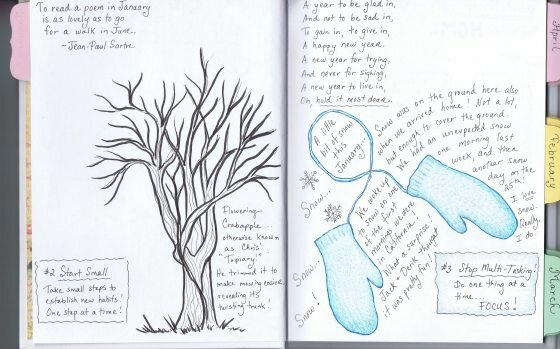 To read a poem in January
is as lovely as to go
for a walk in June.
~Jean-Paul Sartre
Flowering
Crabapple...
otherwise known
as Chris'
"Topiary".
He trimmed it to
make mowing easier,
revealing its
twisting trunk!
#2 Start Small
Take small steps to
establish new habits!
One step at a time!
A year to be glad in,
And not to be sad in,
To gain in, to give in,
A happy new year.
A new year for trying,
And never for sighing,
A new year to live in,
Oh hold it most dear.
A little
bit of snow
this
January...
Snow was on the ground here also
when we arrived home! Not a lot,
but enough to cover the ground.
We had an unexpected snow
one morning last
week, and then
another snow
day on the
I love
snow.
Really,
I do.
Snow...
Snow!
Snow!
We woke up
to snow on one
of the first
mornings we were
in California!
What a surprise!
Jack + Derk thought
it was pretty fun!
#3 Stop Multi-Tasking!
Do one thing at a
time.
FOCUS!
April
February
March